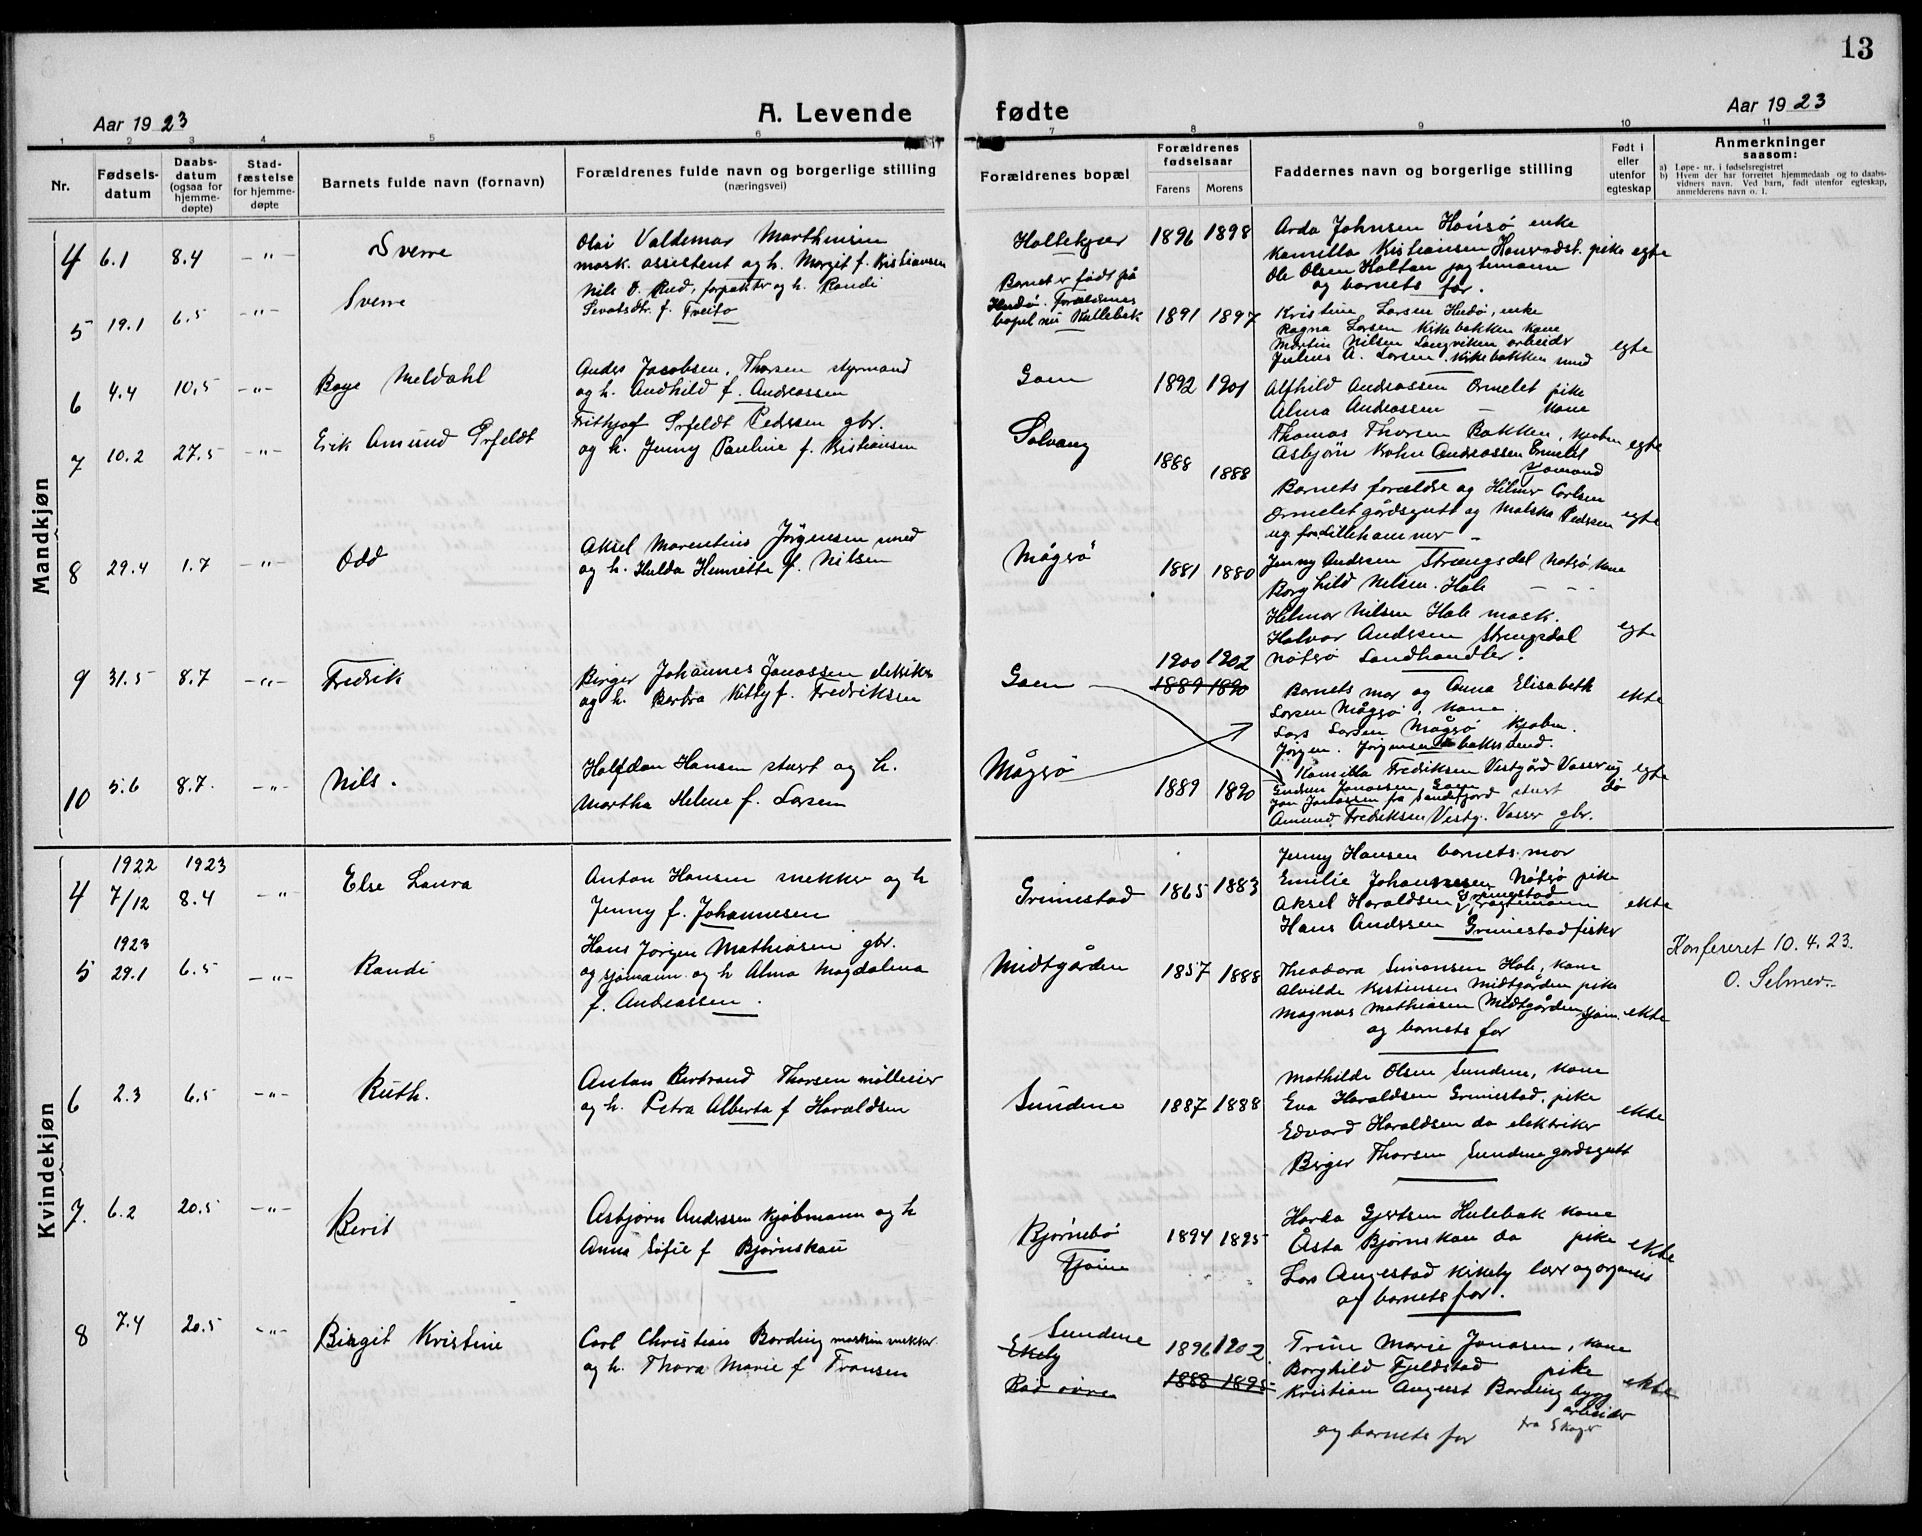 13
Aar 1923
A. Levende fødte
Aar 1923
1 2 3 4 5 6 7 8 9 10 11
Nr.
Fødsels-
datum
Daabs-
datum
(ogsaa for
hjemme-
døpte)
Stad-
fæstelse
for hjemme-
døpte
Barnets fulde navn (fornavn)
Forældrenes fulde navn og borgerlige stilling
(næringsvei)
Forældrenes bopæl
Forældrenes
fødselsaar
Farens Morens
Faddernes navn og borgerlige stilling
Født i
eller
utenfor
egteskap
Anmerkninger
saasom:
a) Løpe-nr. i fødselsregistret
b) Hvem der har forrettet hjemmedaab og to daabs-
vidners navn. Ved barn, født utenfor egteskap,
anmelderens navn o. l.
Mandkjøn
4 6.1 8.4 -"- Sverre
Olai Valdemar Marthinsen
mask. assistent og h. Margit f. Kristiansen
Holtekjær 1896 1898
Arda Johnsen Honsø enke
Kamilla Kristiansen Honvodst. pike egte
Ole Olsen Holtan jagtemann
og barnets far.
5 19.1 6.5 -"- Sverre
Nils O. Rød, forpakter og h. Randi
Sevatsdtr. f. Treito
Barnet er født på
Hudø. Forældrenes
bopel nu Hullebak 1891 1897
Kristine Larsen Hudø, enke
Ragna Larsen Kirkebakken kone
Martin Nilsen Langviken arbeider
Julius A. Larsen Kirkebakken smed egte
6 4.4 10.5 -"- Boye Meldahl
Anders Jacobsen Thorsen styrmand
og h. Andhild f. Andreassen
Goen 1892 1901
Alfhild Andreassen Ormelet pike
Alma Andreassen — kone
Thomas Thorsen Bakken, kjøbm egte
Asbjön Kohn Andreassen Ormelet
sjømand
7 10.2 27.5 -"- Erik Amund Orfeldt
Frithjof Orfeldt Pedersen gbr.
og h. Jenny Pauline f. Kristiansen
Solvang 1888 1888
Barnets foreldre og Hilmer Carlsen
Ormelet gårdsgutt og Malska Pedersen egte
ug fra Lillehammer —
8 29.4 1.7 -"- Odd
Aksel Marentius Jörgensen smed
og h. Hulda Henriette f. Nilsen
Mågerø 1881 1880
Jenny Andersen Strængsdal Nøterø, kone
Borghild Nilsen Hole - - -
Hilmar Nilsen Hole mask.
Halvor Andersen Strengsdal egte
Nøterø Landhandler.
9 31.5 8.7 -"- Fredrik
Birger Johannes Jonassen elektriker
og h. Barbra Kitty f. Fredriksen
Goen 1900 1902
1889 1890
Barnets mor og Anna Elisabeth ekte
Larsen Mågerø, kone
Lars Larsen Mågerø kjøbm.
Jörgen Jörgensen bakersvend.
10 5.6 8.7. -"- Nils.
Halfdan Hansen stuert og h.
Martha Helene f. Larsen
Mågerø 1889 1890
Kamilla Fredriksen Vestgård Vasser ug. egte
Gudrun Jonassen, Goen do
Jon Jonassen fra Sandefjord stuert
Amund Fredriksen Vestg. Vasser gbr.
Kvindekjøn
1922 1923
4 7/12 8.4 -"- Else Laura
Anton Hansen snekker og h
Jenny f. Johannesen
Grimestad 1865 1883
Jenny Hansen barnets mor
Emilie Johannesen Nøterø pike
Aksel Haraldsen Grimestad fragtemann ekte
Hans Andersen Grimestad fisker
1923
5 29.1 6.5 -"- Randi
Hans Jørgen Mathiasen gbr.
og sjømann og h Alma Magdalena
f. Andreassen.
Midtgården 1857 1888
Theodora Simonsen Hole, kone
Alvilde Kristensen Midtgården pike
Magnus Mathiasen Midtgården sjøm. ekte
og barnets far
Konfereret 10.4.23.
O. Selmer.
6 2.3 6.5 -"- Ruth.
Anton Bertrand Thorsen møllerier
og h. Petra Alberta f Haraldsen
Sundene 1887 1888
Mathilde Olsen Sundene, kone
Eva Haraldsen Grimestad, pike
Edvard Haraldsen do elektriker ekte
Birger Thorsen Sundene gårdsgutt
7. 6.2 20.5 -"- Berit
Asbjørn Andersen kjøbmann og h
Anna Sofie f Bjørnskau
Bjørnebø 1894 1895
Tjøme
Harda Gjertsen Hulebak kone
Åsta Bjørnskau do pike ekte
Lars Angestad Kirkeby lærer og organist
og barnets far.
8 7.4 20.5 -"- Birgit Kristine
Carl Christian Bording maskinsnekker
og h. Thora Marie f Fransen
Sundene 1896 1902
Ekeby
Rød øvre 1888 1895
Trine Marie Jonasen, kone
Borghild Fjeldstad pike
Kristian August Bording bygg ekte
arbeider
fra Skoger
og barnets far